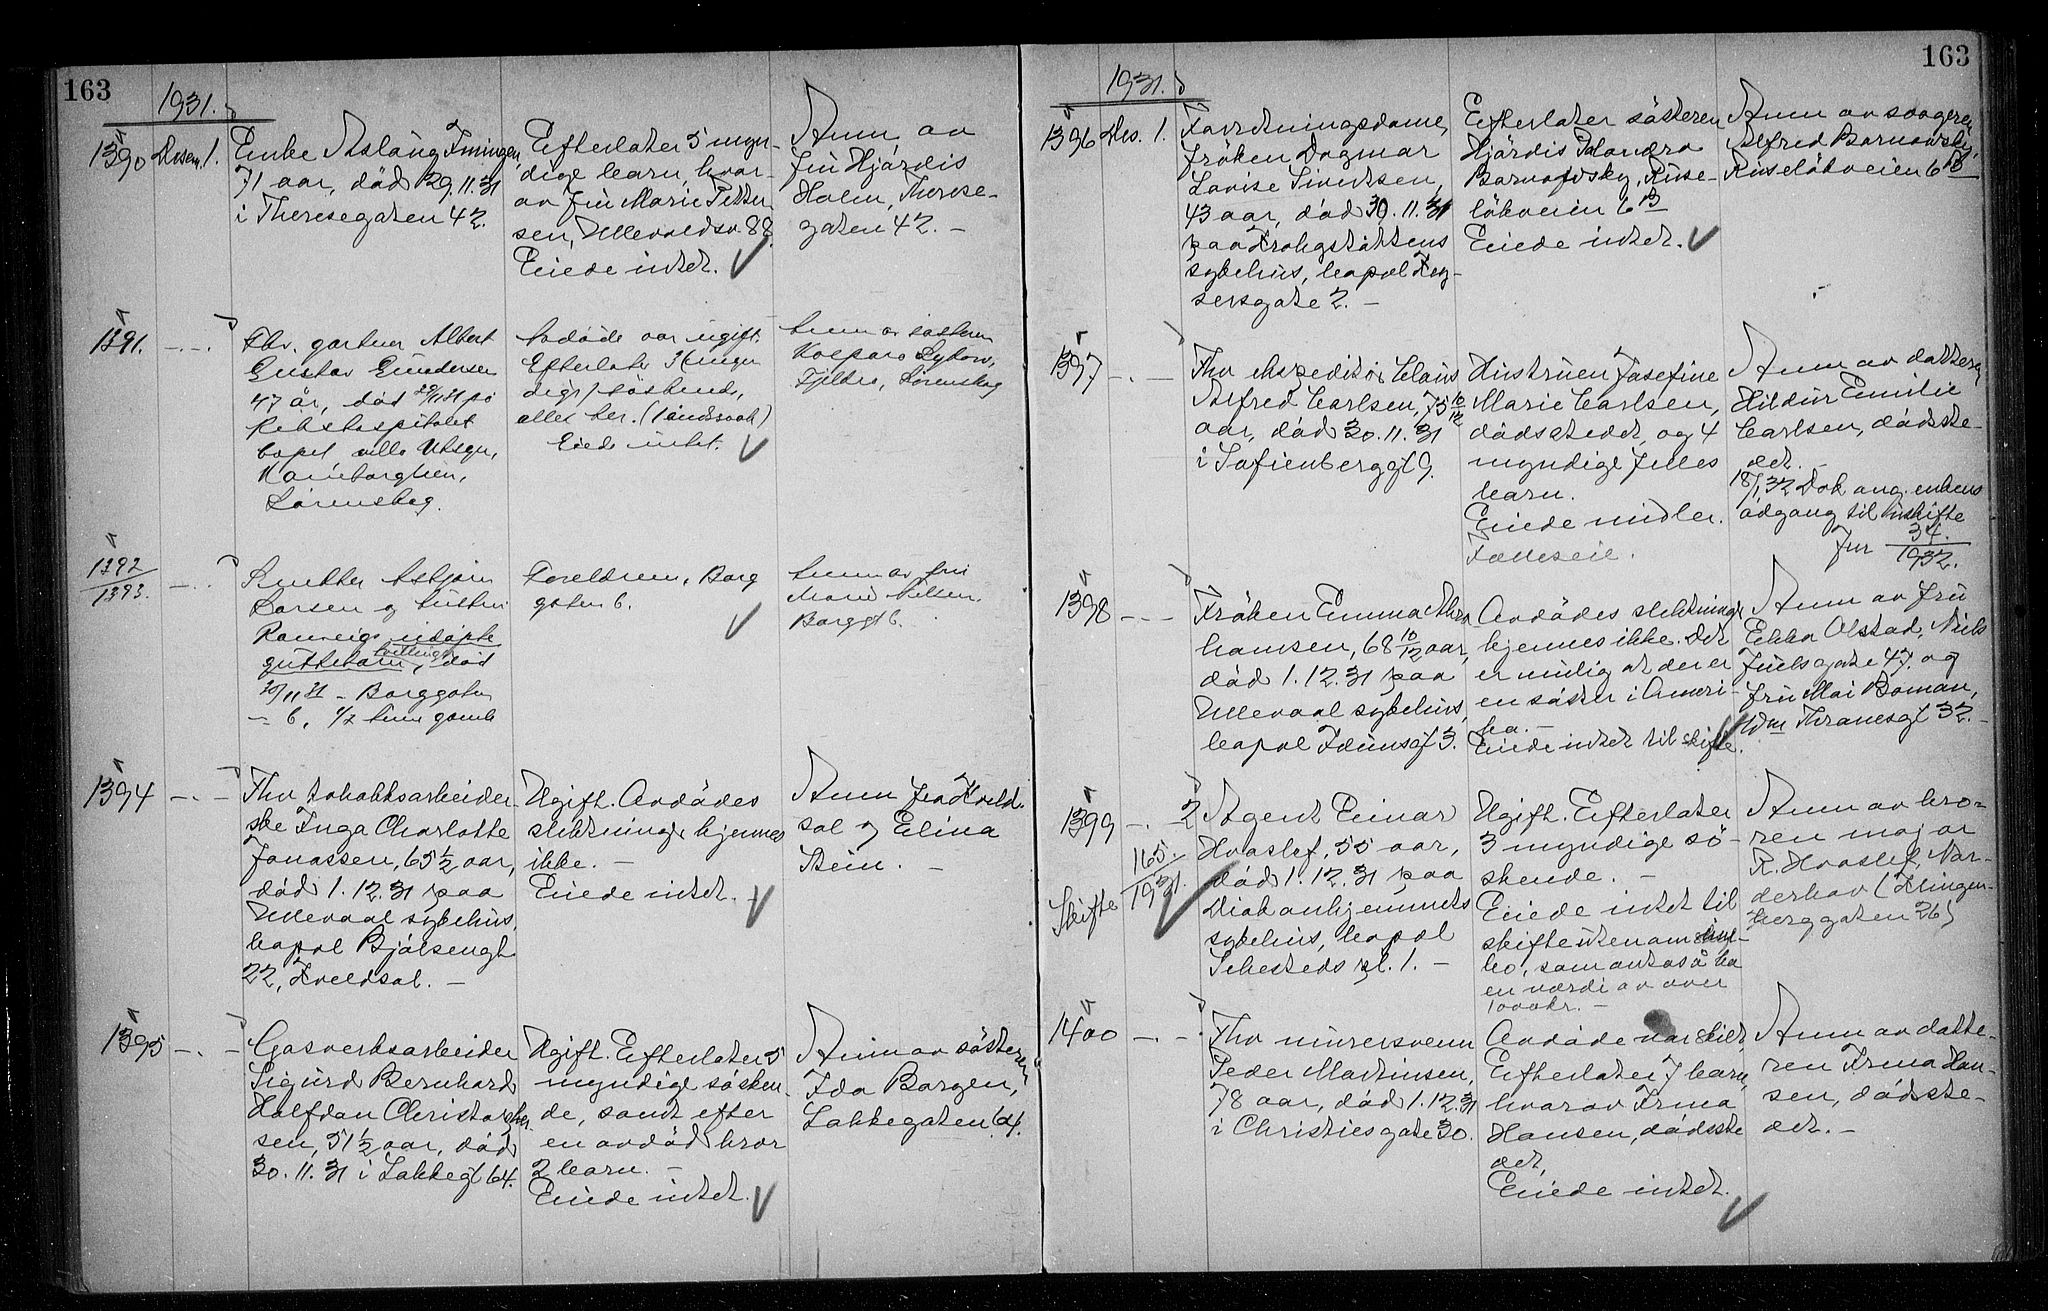 163
1931.
1390 Desem. 1.
Enke Aslaug Imingen,
71 aar, död 29.11.31
i Theresegaten 42.
Efterlater 5 myn-
dige barn, hvor-
av fru Marie Petter
sen, Ullevoldsv 88.
Eiede intet.
Anm. av
fru Hjördis
Holm, Therese-
gaten 42. –
1391. –.–
Fhv. gartner Albert
Gustav Gundersen
47 år, död 29/11 31 på
Rikshospitalet
bopel villa Utsyn,
Lørenskog.
Avdöde var ugift.
Efterlater 3 (myn
dige) söskende,
eller ber. (1 åndssvak)
Eiede intet.
Anm av söstern
Fjeldbo, Lørenskog
1392
1393. –.–
Gutter Asbjørn
Larsen og
udøpte
guttebarn, tvillinger, död
30/11 31 – Borggaten
– 6, 1/2 time gamle
Foreldrene, Borg
gaten 6.
Anm av fru
Marie Nilsen
Borggt 6.
1394 –.–
Fhv tobakksarbeider-
ske Inga Charlotte
Jonassen, 65 1/2 aar,
död 1.12.31 paa
Ullevaal sykehus,
bopel Bjölsengt
22, Kveldsol. –
Ugift. Avdödes
slektninger kjennes
ikke. –
Eiede intet. –
Anm fra Kveld-
sol v Elina
Stein. –
1395 –.–
Gasverksarbeider
Sigurd Bernhard
Halfdan Christoffer-
sen, 51 1/2 aar, död
30.11.31 i Lakkegt 64.
Ugift. Efterlater 5
myndige sösken-
de, samt efter
en avdöd bror
2 barn. –
Eiede intet.
Anm av sösteren
Ida Borgen,
Lakkegaten 64.
163
1931.
1396 Des. 1.
Forretningsdame,
fröken Dagmar
Lovise Sivertsen,
43 aar, död 30.11.31
paa Krohgstöttens
sykehus, bopel Key-
sersgate 2. –
Efterlater sösteren
Hjördis Alandra
Barnofvsky, Ruse-
lökveien 6 B
Eiede intet.
Anm av svogeren
Alfred Barnowsky,
Ruselökveien 6 B
1397 –.–
Fhv ekspeditör Claus
Alfred Carlsen, 75 10/12
aar, död 30.11.31
i Sofienberggt 9.
Hustruen Josefine
Marie Carlsen,
dödsstedet, og 4
myndige felles
barn.
Eiede midler.
Felleseie.
Anm av datteren
Hildur Emilie
Carlsen, dödste-
det. –
18/1 32 Dok ang. enkens
adgang til uskifte
Jnr 34.
1932.
1398 –.–
Fröken Emma Abra
hamsen, 68 10/12 aar,
död 1.12.31 paa
Ullevaal sykehus,
bopel Idunsgt 3.
Avdödes slektninger
kjennes ikke. Det
er mulig at der er
en söster i Ameri-
ka. –
Eiede intet til skifte.
Anm av fru
Ekka Olstad, Niels
Juels gate 47, og
fru Mai Boman,
Wm Thranesgt 32. –
1399 –.– 2
165.
1931.
Skifte
Agent Einar
Hoaslef, 55 aar,
död 1.12.31 paa
Diakonhjemmets
sykehus, bopel
Sehesteds pl. 1. –
Ugift. Efterlater
3 myndige sö-
skende. –
Eiede intet til
skifte utenom inn-
bo, som antas å ha
en værdi av over
1000 kr. –
Anm av bro-
ren major
R. Hoaslef, Nor-
derhov (Klingen-
berggaten 26)
1400 –.–
Fhv murersvenn
Peder Martinsen,
78 aar, död 1.12.31
i Christiesgate 30.
Avdöde var skilt,
Efterlater 7 barn,
hvorav Irma
Hansen, dödsste
det,
Eiede intet.
Anm av datte-
ren Irma Han-
sen, dödsste-
det. –